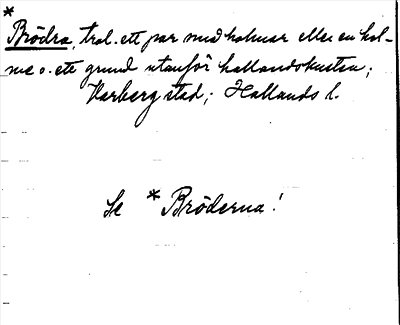 *
Brödra, trol. ett par små holmar eller en hol-
me o. ett grund utanför hallandskusten;
Varberg stad; Hallands l.
Se *Bröderna!